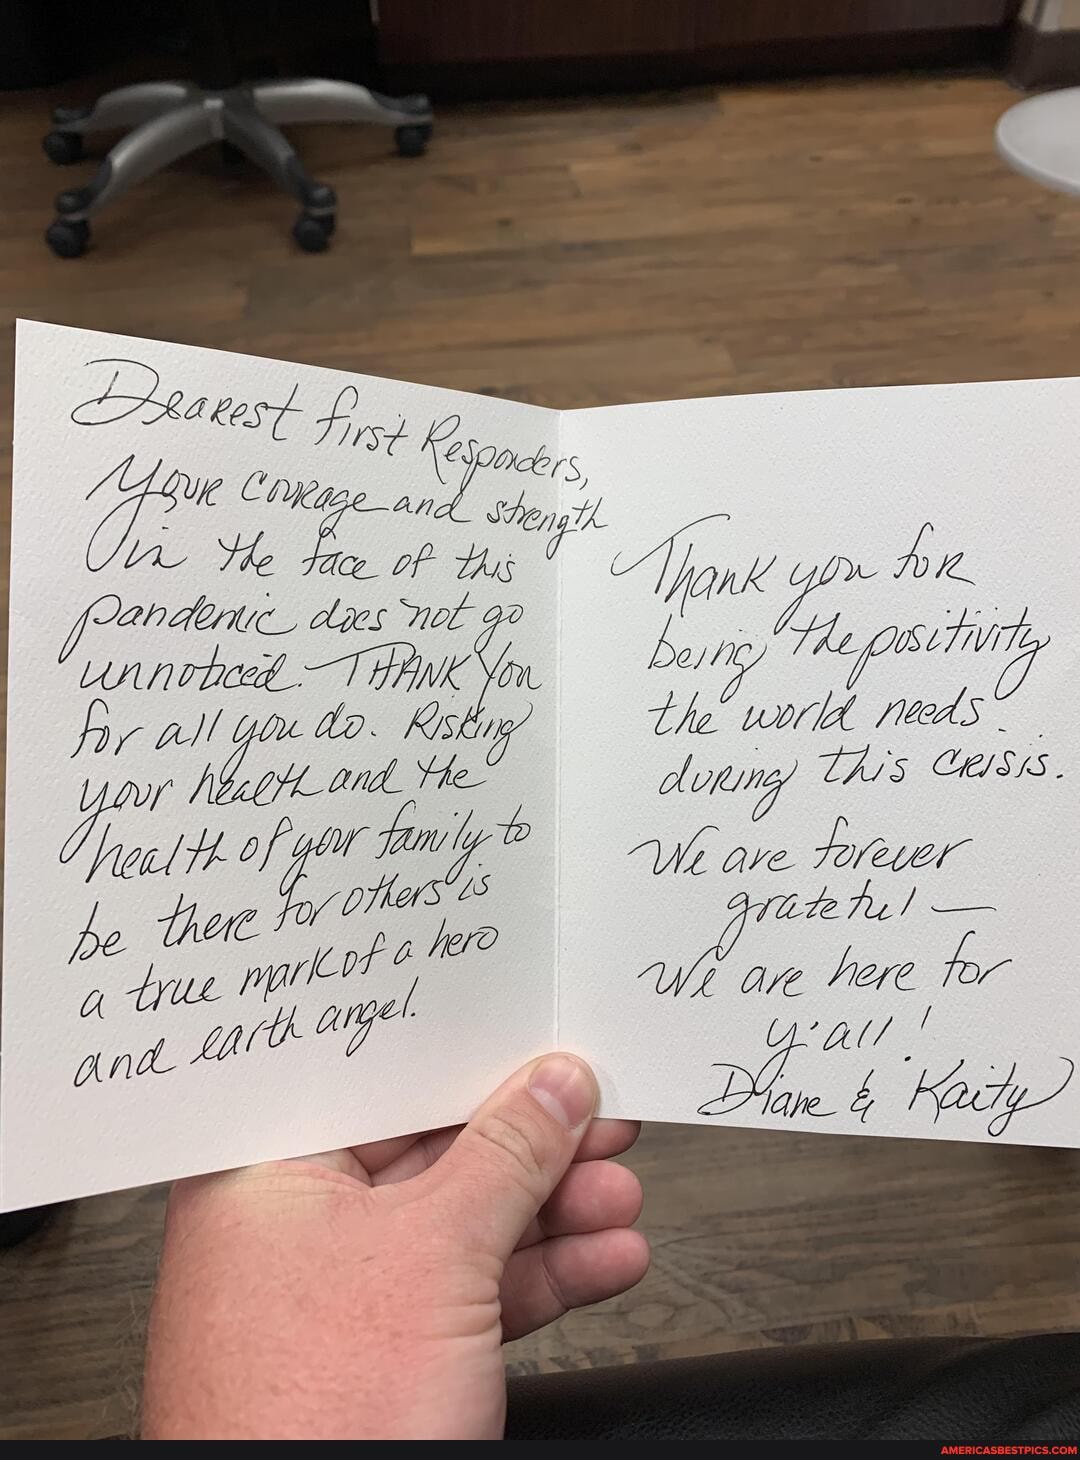 Dearest first Responders,
Your courage and strength
in the face of this
pandemic does not go
unnoticed. THANK You
for all you do. Risking
your health and the
health of your family to
be there for others is
a true mark of a hero
and earth angel.
Thank you for
being the positivity
the world needs
during this crisis.
We are forever
grateful —
We are here for
y'all!
Diane & Kaity
AMERICASBESTPICS.COM